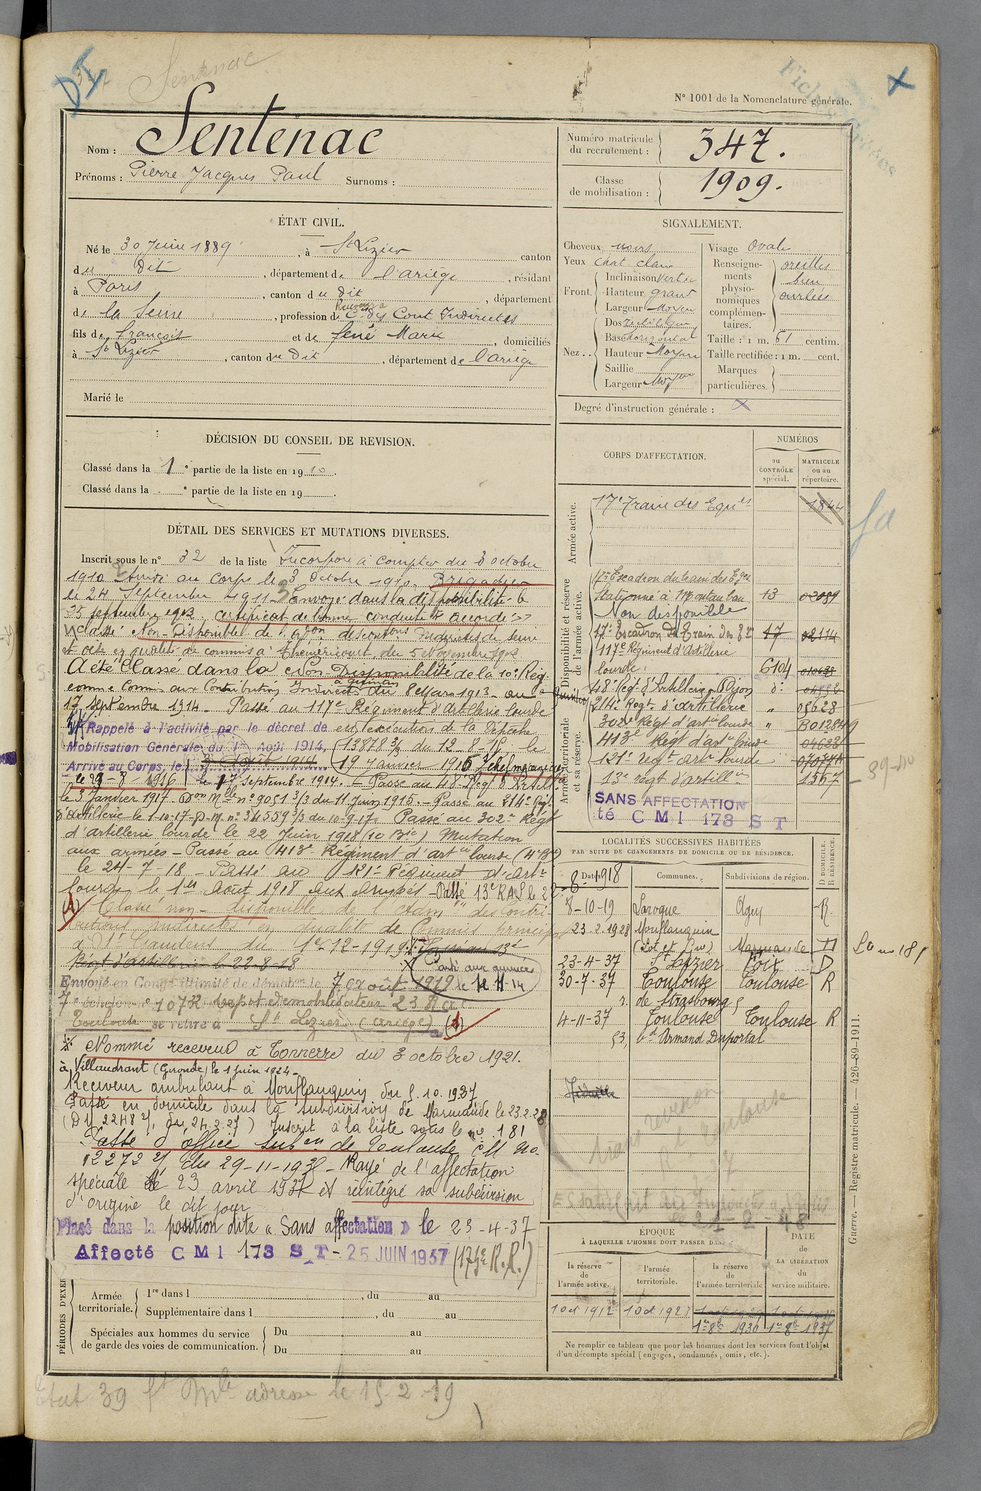 Sentenac
N° 1001 de la Nomenclature générale.
Nom : Sentenac
Prénoms : Pierre Jacques Paul Surnoms :
Numéro matricule du recrutement : 347.
Classe de mobilisation : 1909.
ÉTAT CIVIL.
Né le 30 Juin 1889, à St Lizier canton
du Dit, département de l'ariège, résidant
à Paris, canton du Dit, département
de la Seine, profession de Cis des Cont Indirectes
fils de François et de Sené Marie, domiciliés
à St Lizier, canton du Dit, département de l'ariège
Marié le
SIGNALEMENT.
Cheveux noirs
Yeux chat clair
Front. Inclinaison Vertic
Hauteur grand
Largeur Moyen
Nez... Dos
Base horizontal
Hauteur Moyen
Saillie
Largeur Moyen
Visage Ovale
Renseignements physionomiques complémentaires. oreilles bien ourlées
Taille : 1 m. 61 centim.
Taille rectifiée : 1 m. cent.
Marques particulières.
Degré d'instruction générale : X
DÉCISION DU CONSEIL DE REVISION.
Classé dans la 1e partie de la liste en 1910.
Classé dans la e partie de la liste en 19
DÉTAIL DES SERVICES ET MUTATIONS DIVERSES.
Inscrit sous le n° 32 de la liste Incorporé à compter du 3 octobre
1910 Arrivé au corps le 3 octobre 1910. Brigadier
le 24 Septembre 1911. Envoyé dans la disponibilité le
25 septembre 1912, certificat de bonne conduite accordé
Classé Non-Disponible de l'Aon des contons Indirectes de Seine
et Oise en qualité de commis à du 5 Novembre 1912
A été Classé dans la Non Disponibilité de la 10e Rég
comme Commis aux Contributions Indirects du 8 Mars 1913 au
17 Septembre 1914. Passé au 117e Régiment d'Artillerie lourde
Rappelé à l'activité par le décret de en exécution de la Dépêche
Mobilisation Générale du 1er Août 1914, (13878 3/3 du 12-8-15 le
Arrivé au Corps, le 3 Août 1914 19 Janvier 1916
le 29-8-1916 le 17 septembre 1914. Passé au 48e Rég d'Artill
le 3 Janvier 1917 Don Mlle n° 9051 3/3 du 11 Juin 1915. Passé au 214e Régt
d'artillerie le 1-10-17 D.M. n° 34559 3/3 du 10-9-17. Passé au 302e Régt
d'artillerie lourde le 22 Juin 1918 (10 Bie) Mutation
aux armées - Passé au 413e Régiment d'artie lourde
le 24-7-18 - Passé au 121e Régiment d'Artie
lourde le 1er Août 1918 aux Armées - Passé 13e RA le 22-8-1918
(A) Classé non-disponible de l'Adm on des contri-
butions indirectes en qualité de Commis principal
à St Gaudens du 1er-12-1919.
Régt d'artillerie le 22-8-18
Parti aux armées le 14
Envoyé en Congé illimité de démobon le 7 août 1919
7e échelon n° 1072 dépôt démobilisateur 23 RA
Toulouse se retire à St Lizier (Ariège) (A)
Nommé receveur à Tonnerre du 3 octobre 1921.
à Villandraut (Gironde) le 1 juin 1924
Receveur ambulant à Monflanquin du 5.10.1937
Passé en domicile dans la subdivision de Marmande le 23.2.28
Inscrit à la liste sous le n° 181
Passé d'office subon de Toulouse CM no.
12272 du 29-11-193 - Rayé de l'affectation
spéciale le 23 avril 1937 et réintégré sa subdivision
d'origine le dit jour
Placé dans la position dite « Sans affectation » le 23-4-37
Affecté CMI 173 ST - 25 JUIN 1937 (175e R.R.)
CORPS D'AFFECTATION.
NUMÉROS
au CONTRÔLE spécial.
MATRICULE ou au répertoire.
Armée active.
17e Train des Equies 1844
Disponibilité et réserve de l'armée active.
17e Escadron du train des Eges
stationné à Montauban 13 02039
Non disponible
17e Escadron du Train des Eq 17 02114
117e Régiment d'Artillerie
lourde. 6104
48e Régt d'Artillerie Dijon
214e Régt d'artillerie 05628
302e Régt d'arte lourde " B012849
Armée territoriale et sa réserve.
413e Régt d'arte lourde
121e régt arte lourde
13e régt d'artillie 1367
39-40
SANS AFFECTATION
té CMI 173 ST
LOCALITÉS SUCCESSIVES HABITÉES
PAR SUITE DE CHANGEMENTS DE DOMICILE OU DE RÉSIDENCE.
Dates. Communes. Subdivisions de région. D. DOMICILE. R. RÉSIDENCE.
8-10-19 Laroque Agen R.
23.2.1928 Monflanquin
(Lot et Gne) Marmande D
23-4-37 St Lizier Foix D
30-7-37 Toulouse Toulouse R
r. de Strasbourg
4-11-37 Toulouse Toulouse R
53, bd Armand Duportal
21-2-48
ÉPOQUE
À LAQUELLE L'HOMME DOIT PASSER DANS
DATE de LA LIBÉRATION du service militaire.
la réserve de l'armée active.
l'armée territoriale.
la réserve de l'armée territoriale
1 oct 1912 1 oct 1923
1er 8bre 1936 1er 8bre 1937
Ne remplir ce tableau que pour les hommes dont les services font l'objet
d'un décompte spécial (engagés, condamnés, omis, etc.).
PÉRIODES D'EXER
Armée territoriale. 1re dans l , du au
Supplémentaire dans l , du au
Spéciales aux hommes du service de garde des voies de communication. Du au
Du au
Guerre. — Registre matricule. — 426-89-1911.
Etat 39 ft Mle adresse le 15-2-19